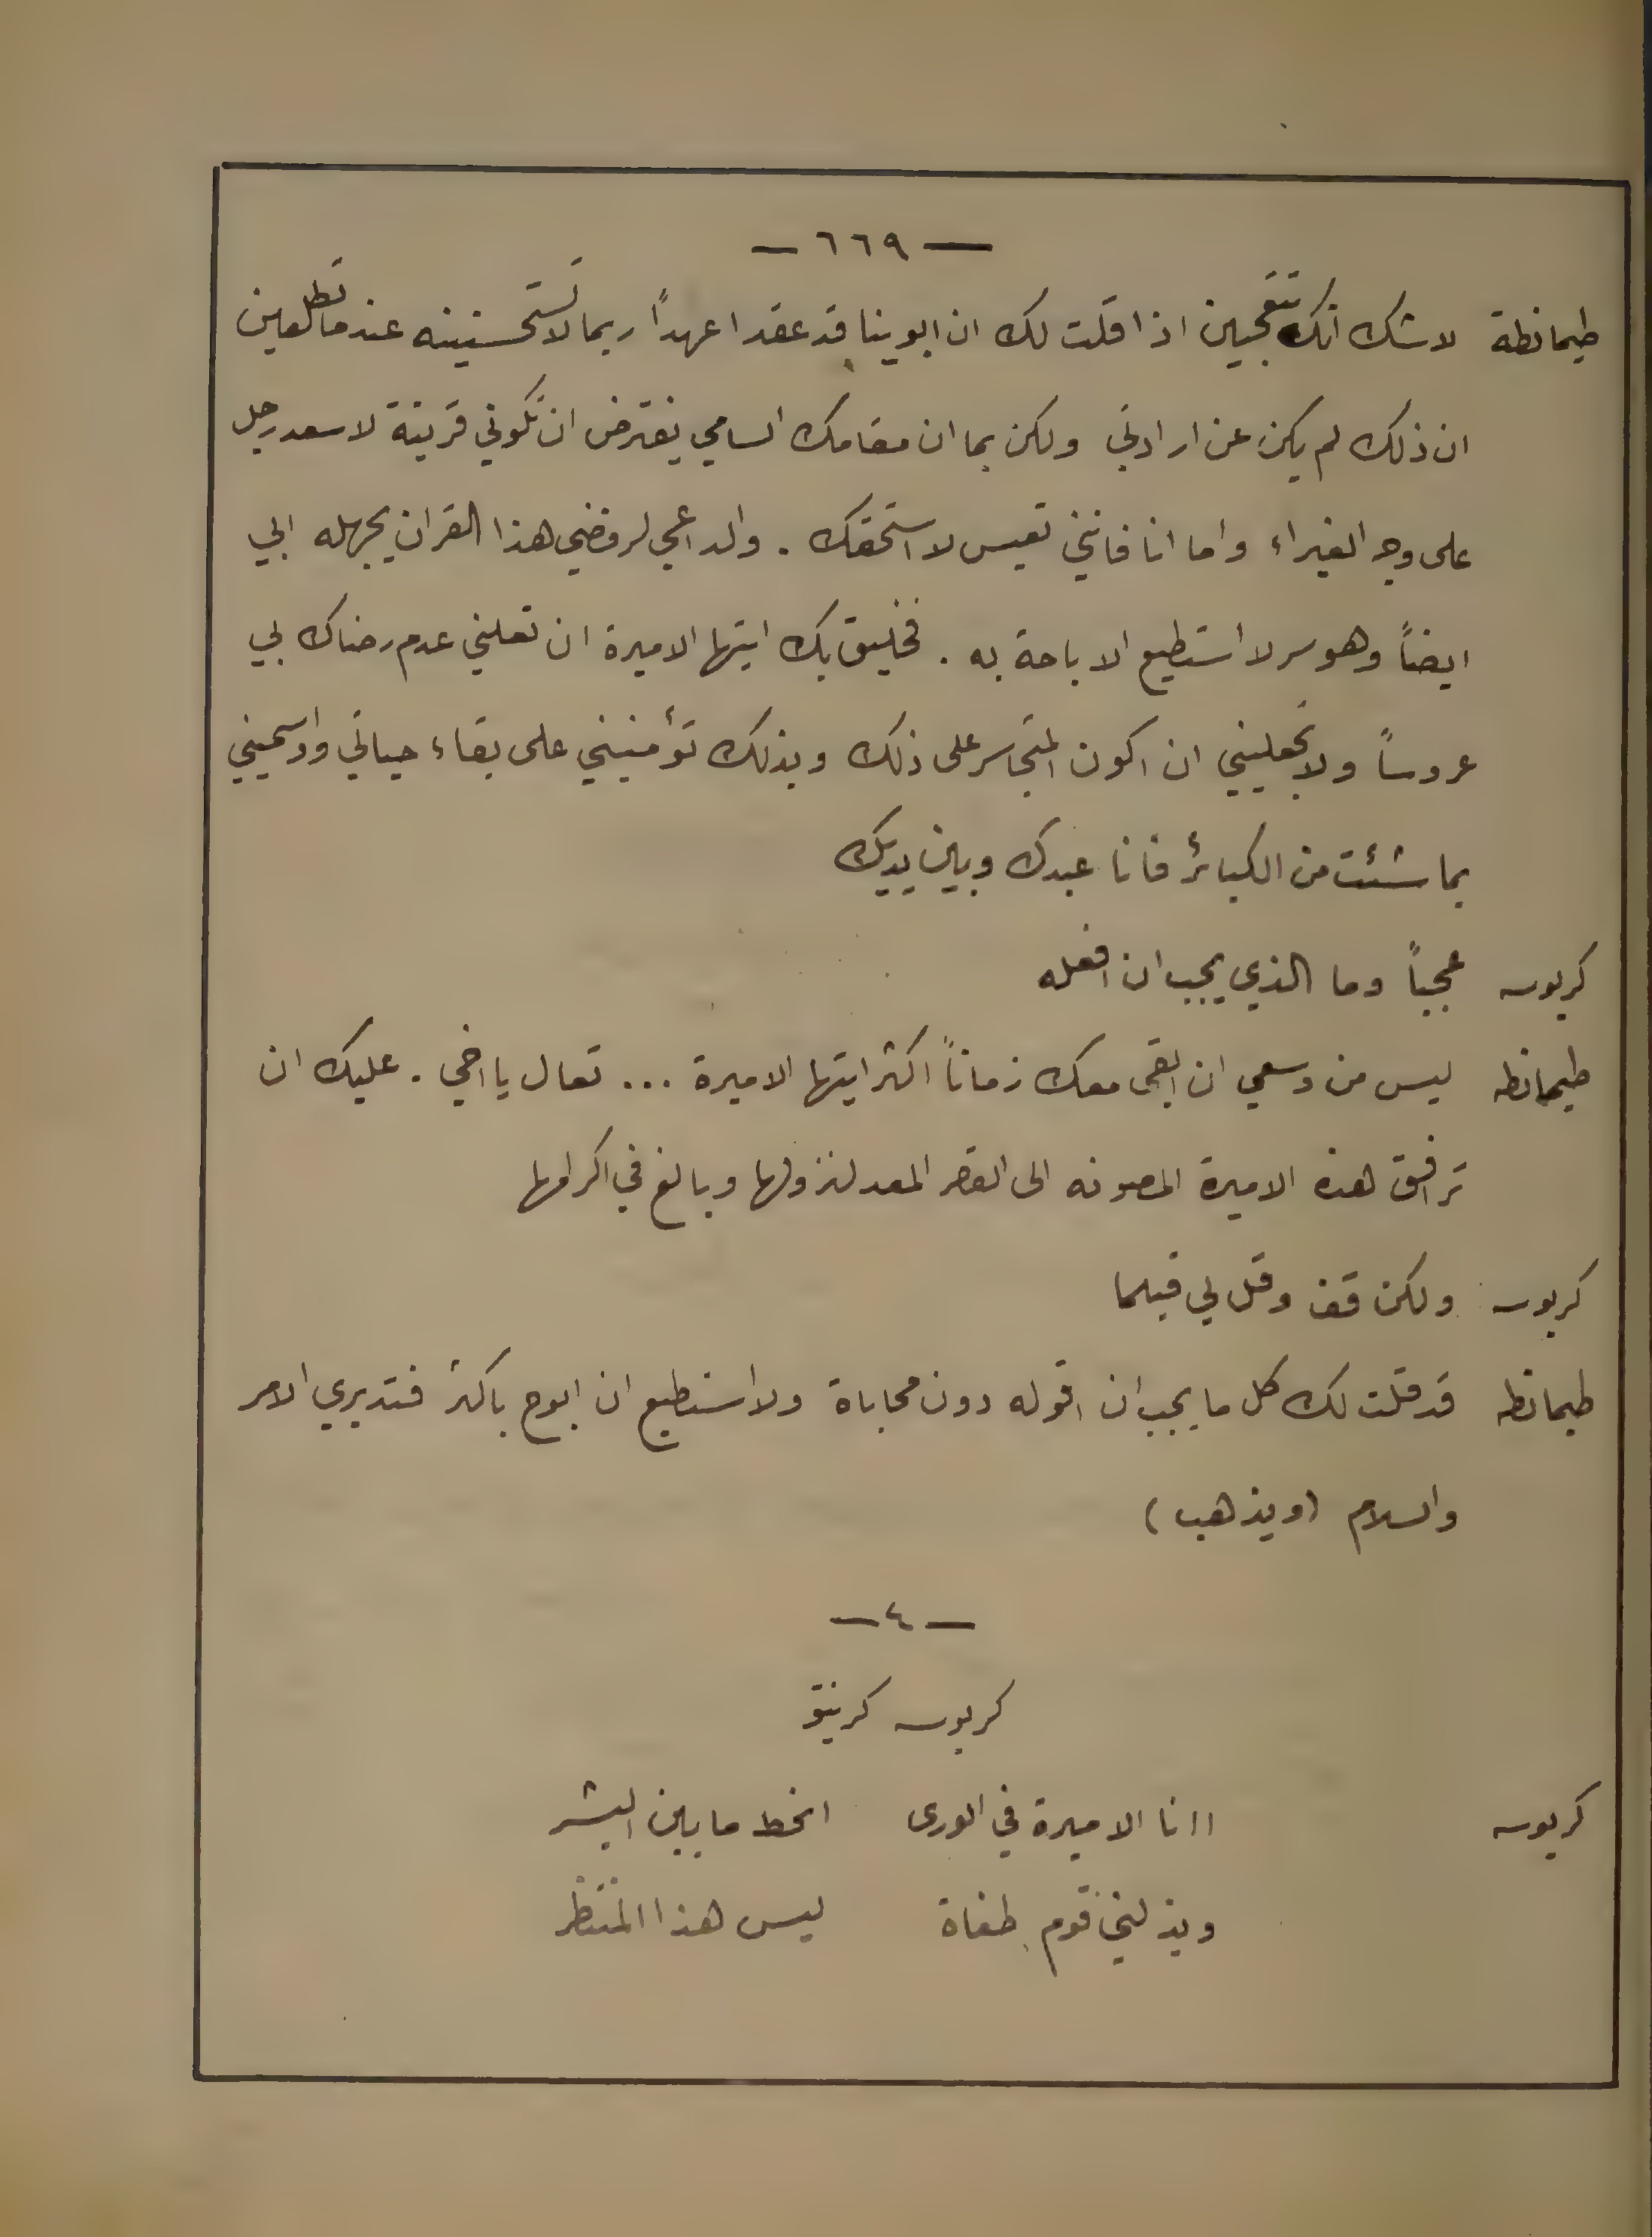 — ٦٦٩ —
طيمانطة لا شك انك تتعجبين اذا قلت لك ان ابوينا قد عقدا عهداً ربما لا تستحسنينه عندما تطلعين
ان ذلك لم يكن عن ارادتي ولكن بما ان مقامك السامي يفترض ان تكوني قرينة لاسعد رجل
على وجه الغبراء واما انا فانني تعيس لا استحقك . والداعي لرفضي هذا القران يجهله ابي
ايضاً وهو سر لا استطيع الاباحة به . فخليق بك ايتها الاميرة ان تعلني عدم رضاك بي
عروساً ولا تجعليني ان اكون المتجاسر على ذلك وبذلك تؤمنيني على بقاء حياتي واوسميني
بما شئت من الكبائر فانا عبدك وبين يديك
كربوسه عجباً وما الذي يجب ان افعله
طيمانطه ليس من وسعي ان ابقى معك زماناً اكثر ايتها الاميرة ... تعال يا اخي . عليك ان
ترافق هذه الاميرة المصونه الى القصر المعد لنزولها وبالغ في اكرامها
كربوسه ولكن قف وقل لي فيلما
طيمانطه قد قلت لك كل ما يجب ان اقوله دون محاباة ولا استطيع ان ابوح باكثر فتديري الامر
والسلام (ويذهب)
— ٤ —
كربوسه كرينتو
كربوسه اانا الاميرة في الورى انحط ما بين البشر
ويذلني قوم طغاة ليس هذا المنتظر